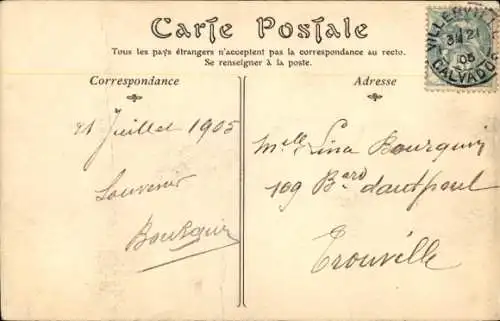 Carte Postale
Tous les pays étrangers n'acceptent pas la correspondance au recto.
Se renseigner à la poste.
Correspondance
Adresse
VILLERVILLE
21
05
CALVADOS
21 Juillet 1905
Souvenir
Bourquin
Melle Lina Bourquin
109 Bard d'autpoul
Trouville